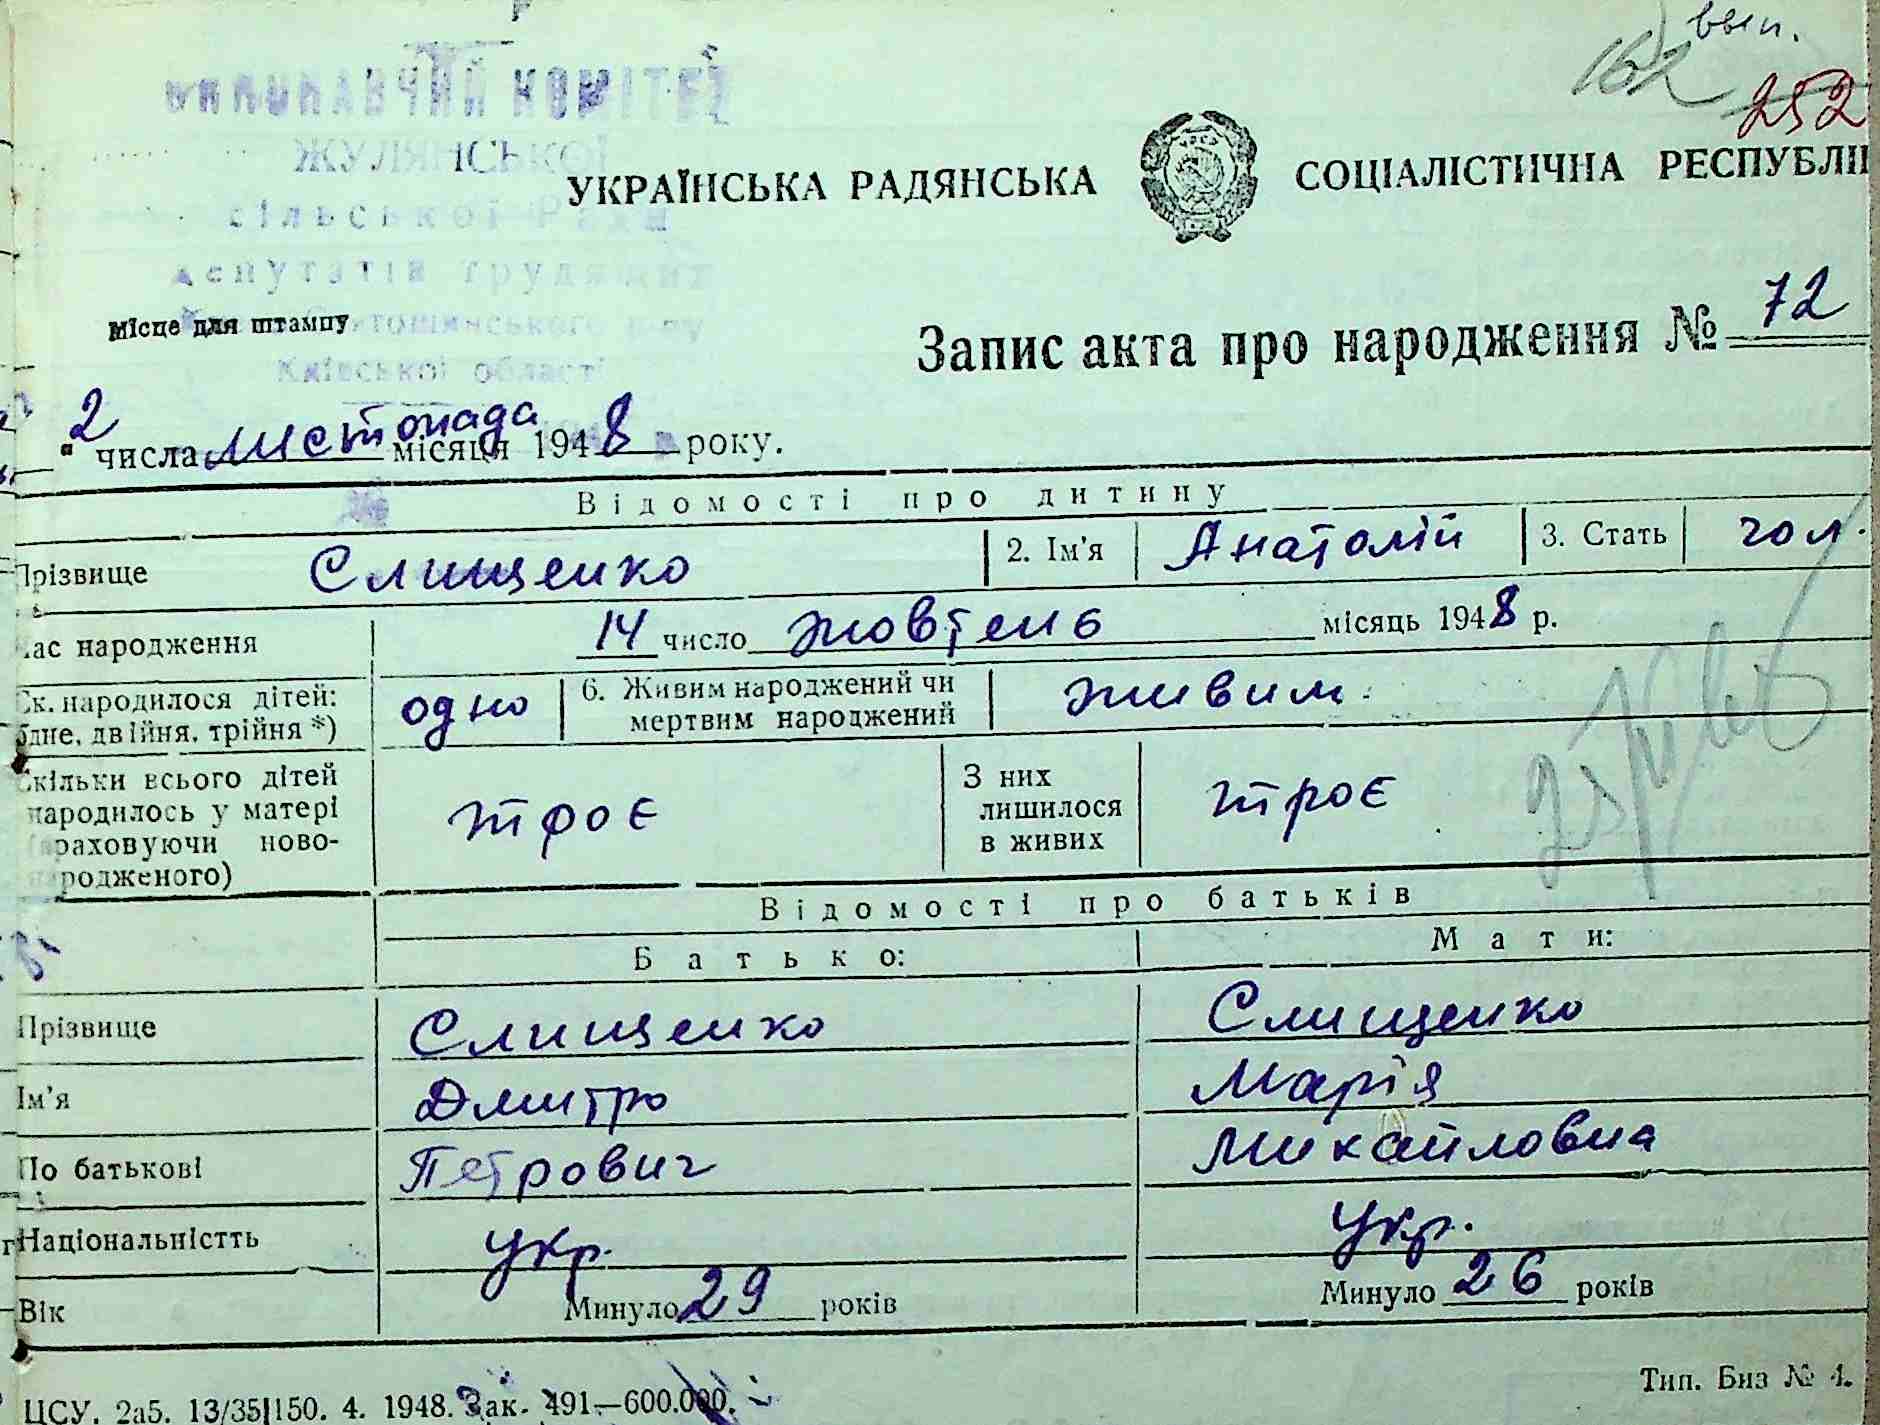 вып.
162
252
ВИКОНАВЧИЙ КОМІТЕТ
ЖУЛЯНСЬКОЇ
сільської Ради
депутатів трудящих
Київської області
УКРАЇНСЬКА РАДЯНСЬКА СОЦІАЛІСТИЧНА РЕСПУБЛІ
Місце для штампу
Запис акта про народження № 72
2 числа листопада місяця 1948 року.
Відомості про дитину
Прізвище Слищенко 2. Ім'я Анатолій 3. Стать чол.
час народження 14 число жовтень місяць 1948 р.
Ск. народилося дітей: одне, двійня, трійня *) одно 6. Живим народжений чи мертвим народжений живим.
Скільки всього дітей народилось у матері (враховуючи ново-народженого) троє З них лишилося в живих троє
Відомості про батьків
Батько: Мати:
Прізвище Слищенко Слищенко
Ім'я Дмитро Марія
По батькові Петрович Михайловна
Національністть укр. укр.
Вік Минуло 29 років Минуло 26 років
ЦСУ. 2а5. 13/35|150. 4. 1948. Зак. 491—600.000.
Тип. Биз № 4.